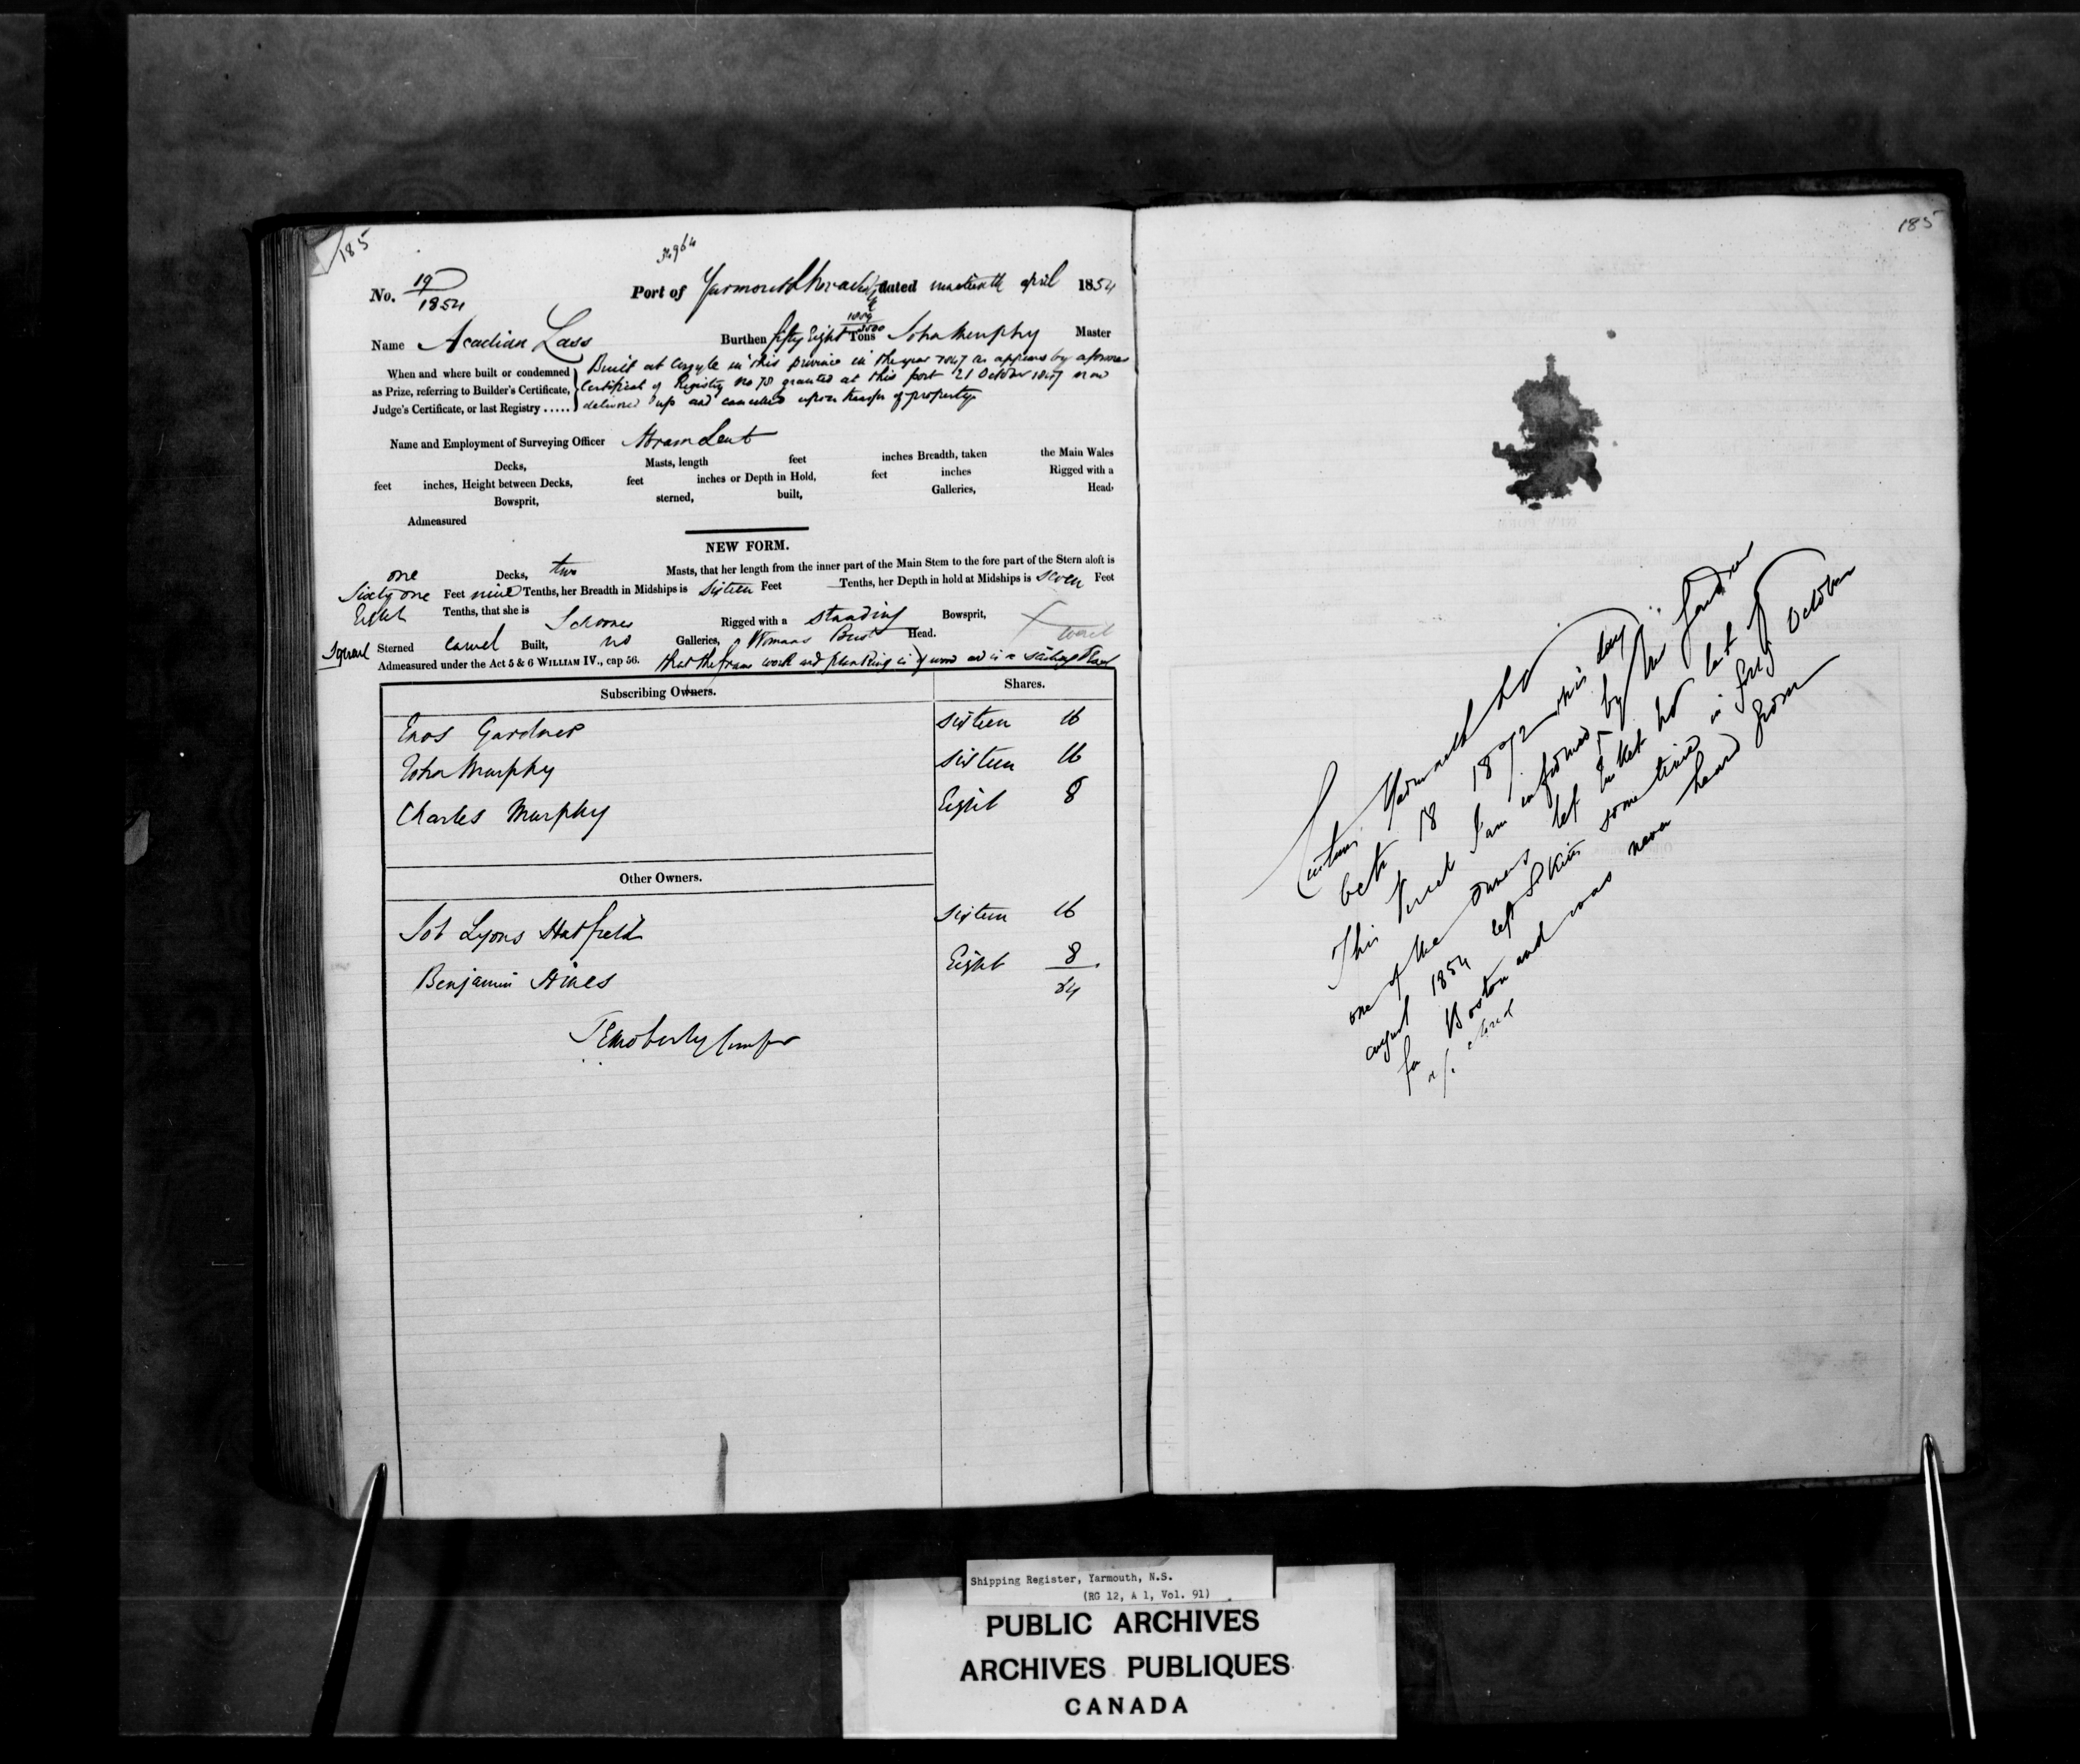 185
34964
No. 19/1854 Port of Yarmouth Nova Scotia dated nineteenth april 1854
Name Acadian Lass Burthen fifty Eight 1059/3500 Tons John Murphy Master
When and where built or condemned as Prize, referring to Builder's Certificate, Judge's Certificate, or last Registry .....
Built at Argyle in this province in the year 1847 as appears by a former
Certificate of Registry No 78 granted at this port 21 October 1847 now
delivered up and cancelled upon transfer of property
Name and Employment of Surveying Officer Abram Lent
Decks, Masts, length feet inches Breadth, taken the Main Wales
feet inches, Height between Decks, feet inches or Depth in Hold, feet inches Rigged with a
Bowsprit, sterned, built, Galleries, Head.
Admeasured
NEW FORM.
one Decks, two Masts, that her length from the inner part of the Main Stem to the fore part of the Stern aloft is
Sixty one Feet nine Tenths, her Breadth in Midships is Sixteen Feet — Tenths, her Depth in hold at Midships is seven Feet
Eight Tenths, that she is Schooner Rigged with a standing Bowsprit,
Square Sterned carvel Built, no Galleries, Womans Bust Head.
Admeasured under the Act 5 & 6 WILLIAM IV., cap 56. that the frame work and planking is of wood and is a sailing Vessel
Subscribing Owners. Shares.
Enos Gardner sixteen 16
John Murphy sixteen 16
Charles Murphy Eight 8
Other Owners.
Job Lyons Hatfield sixteen 16
Benjamin Hines Eight 8
64
185
Customs Yarmouth NS
Octr 18 1872 this day
This Vessel I am informed by Mr Gardner
one of the owners left Tusket NS last of
august 1854 left St Kitts some time in Octover
for Boston and was never heard from
closed
Shipping Register, Yarmouth, N.S.
(RG 12, A 1, Vol. 91)
PUBLIC ARCHIVES
ARCHIVES PUBLIQUES
CANADA